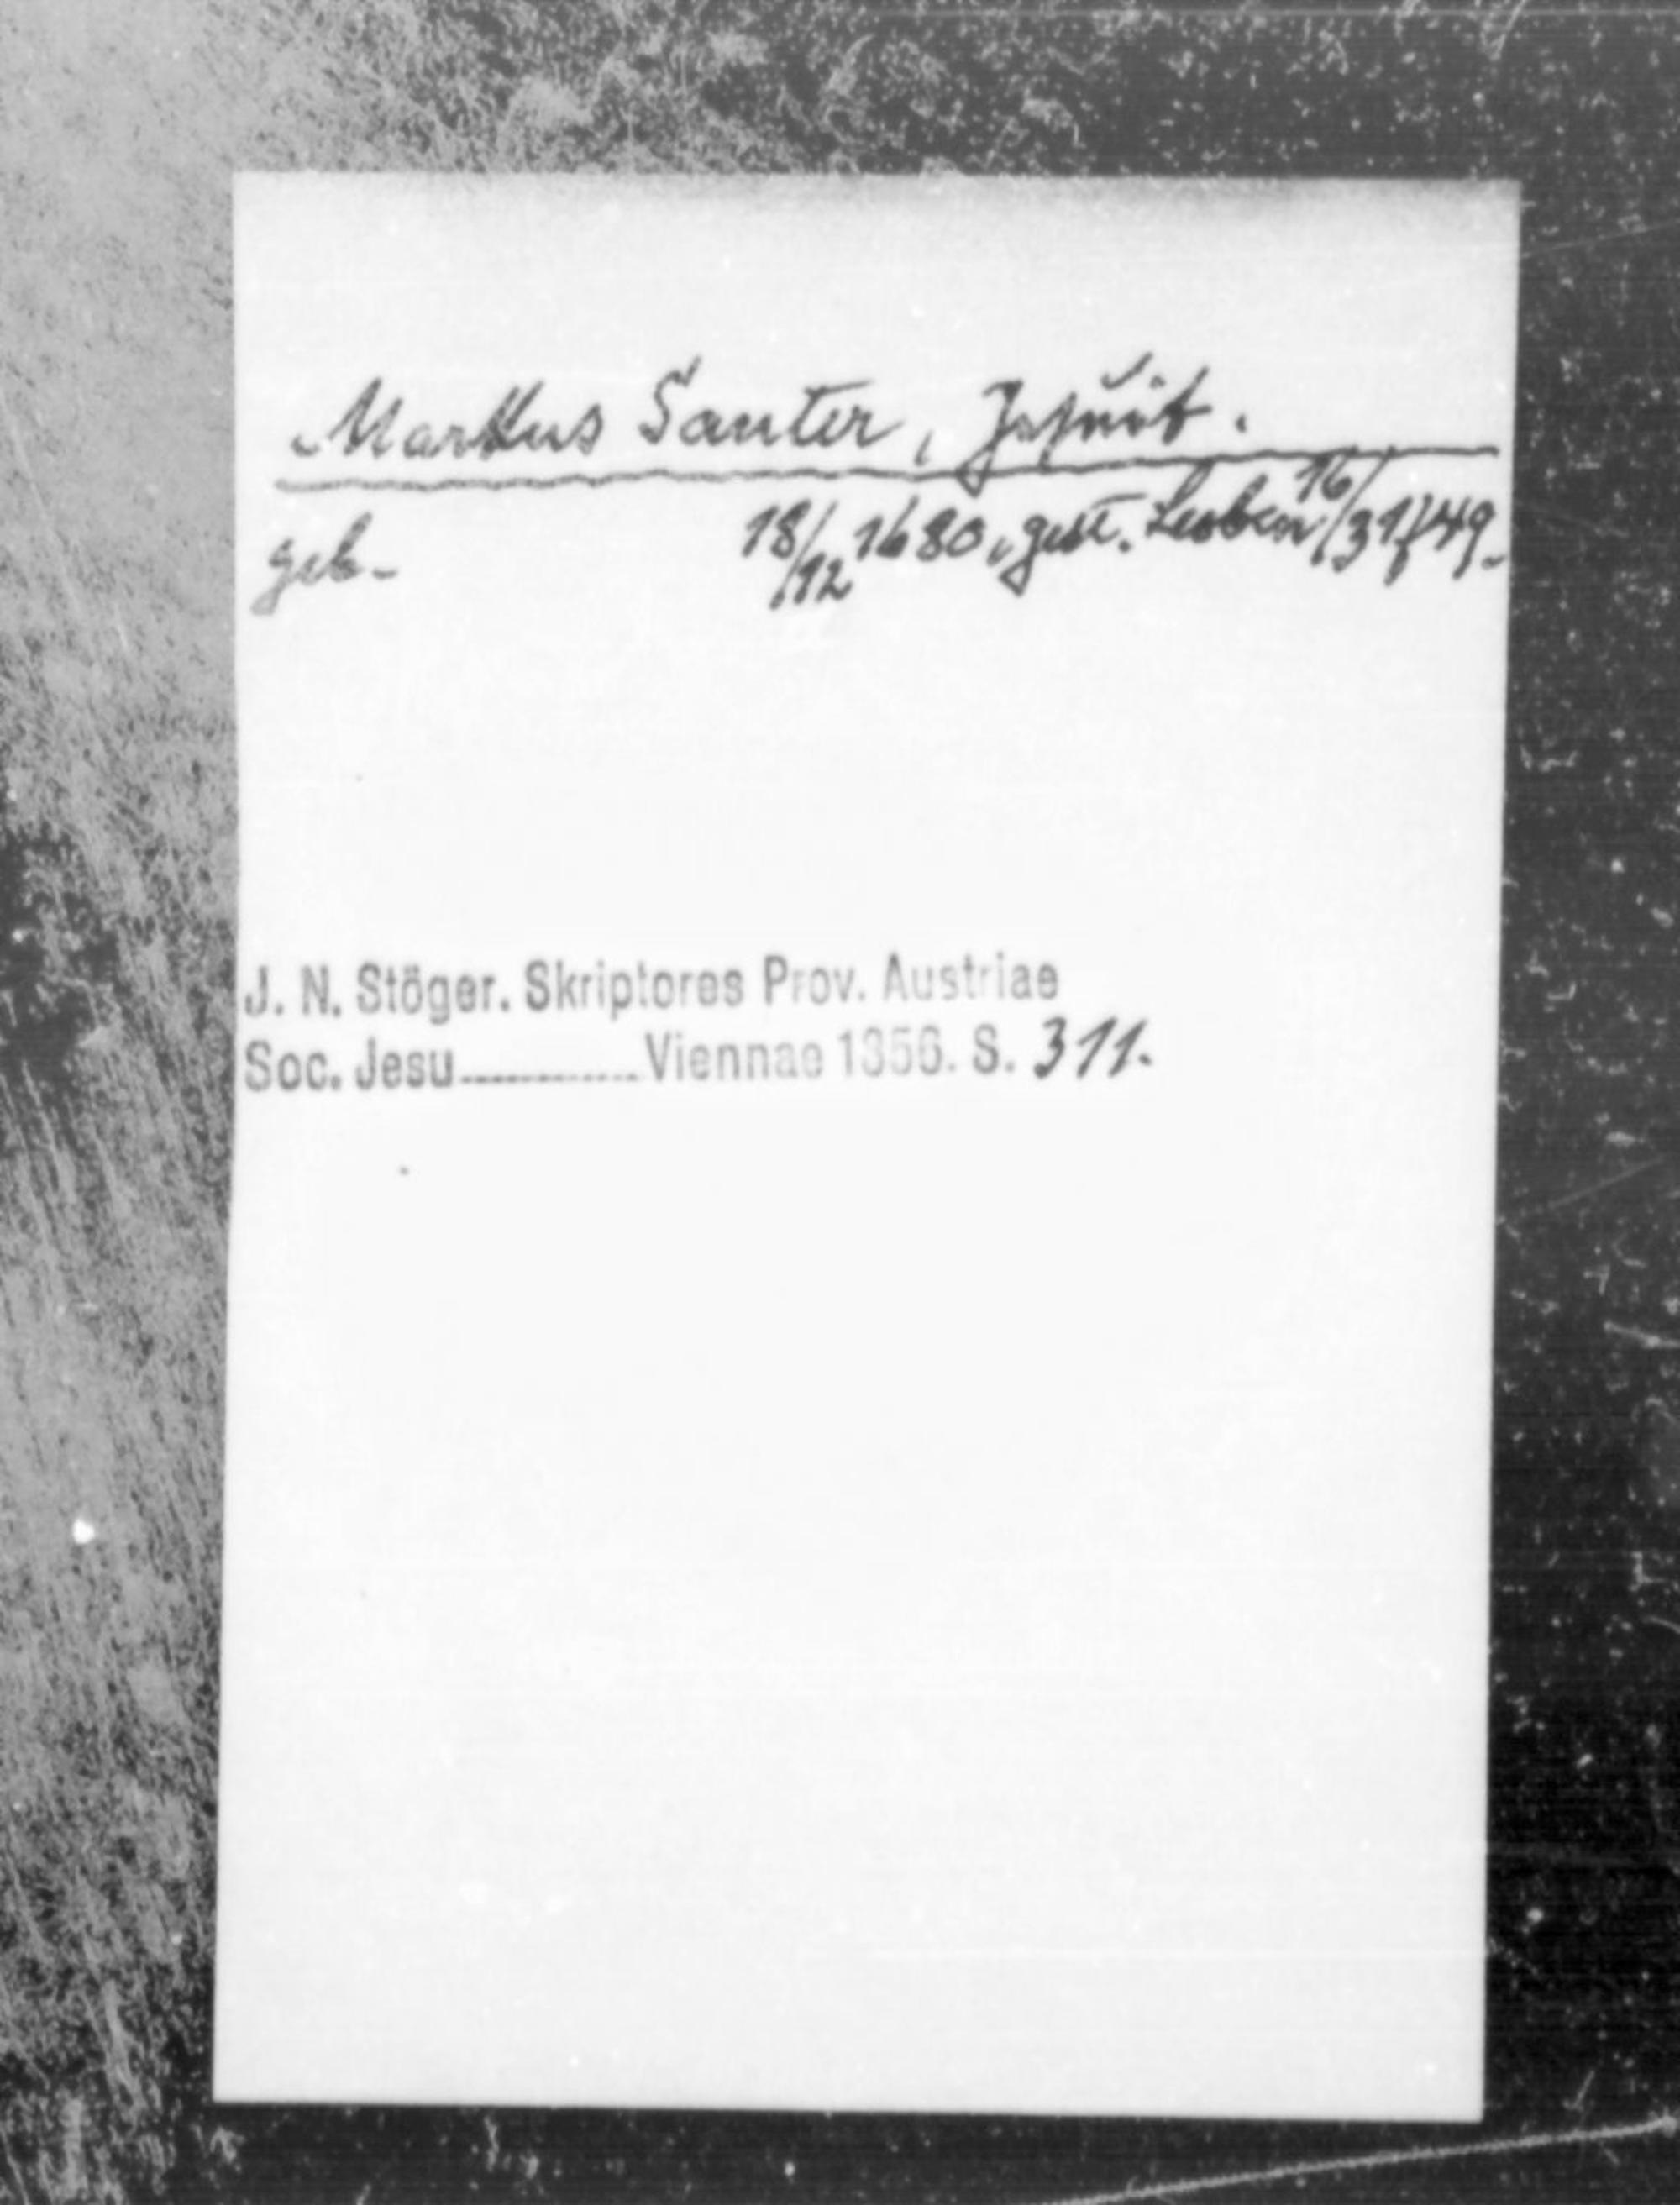 Markus Santer, Jesuit.
geb. 18/12 1680, gest. Leoben 16/3 1749.
J. N. Stöger. Skriptores Prov. Austriae
Soc. Jesu ............ Viennae 1356. S. 311.